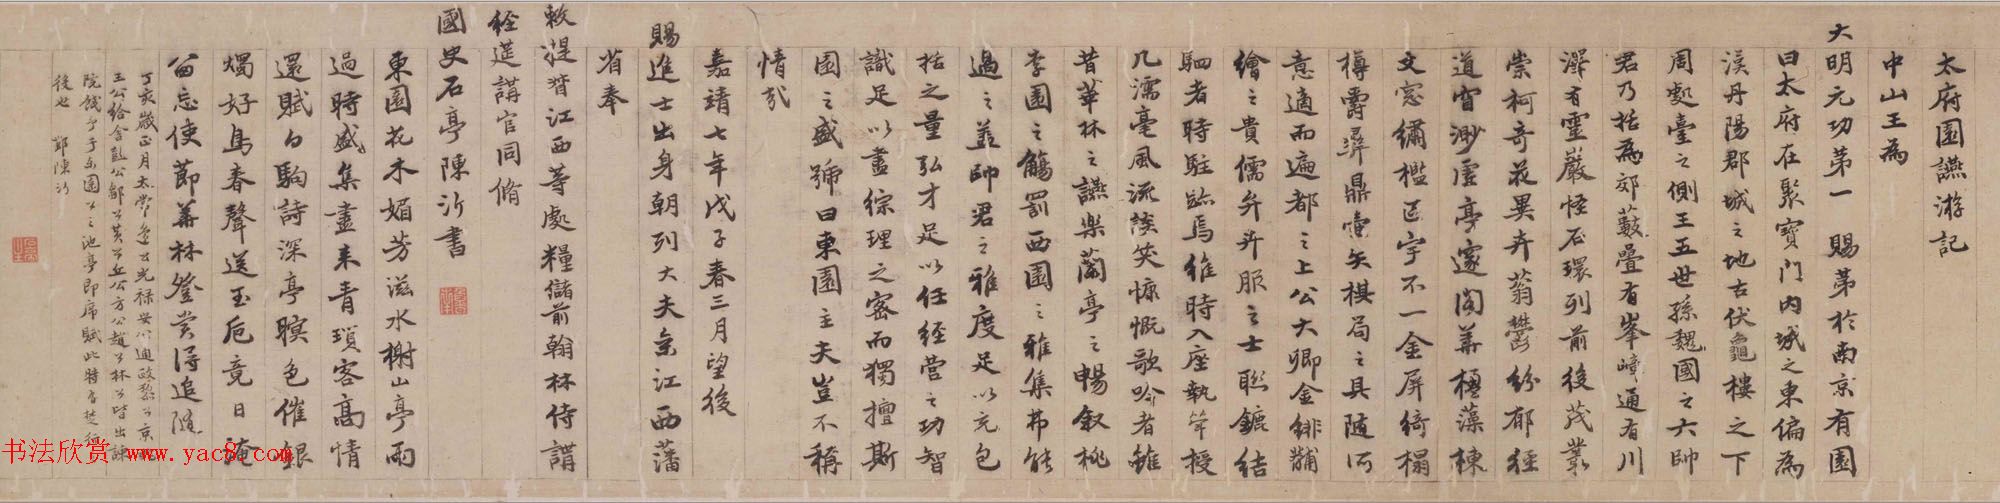 太府園讌游記
中山王為
大明元功第一 賜第於南京有園
曰太府在聚寶門内城之東偏為
漢丹陽郡城之地古伏龜樓之下
周處臺之側王五世孫魏國之六帥
君乃括為郊藪疊有峯嶂通有川
澤有靈巖怪石環列前後茂叢
崇柯奇花異卉蓊鬱紛郁經
道窅渺虛亭邃閣華榱藻棟
文窓繡檻匹宇不一金屏綺榻
樽罍彝鼎壷矢棋局之具隨所
意適而遍都之上公大卿金緋黼
繪之貴儒弁卉服之士聯鑣結
駟者時駐臨焉維時入座執斝授
几濡毫風流談笑慷慨歌吟者雖
昔華林之讌樂蘭亭之暢叙桃
李園之觴罰西園之雅集弗能
過之盖帥君之雅度足以充包
括之量弘才足以任經营之功智
識足以盡綜理之密而獨擅斯
園之盛號曰東園主夫豈不稱
情哉
嘉靖七年戊子春三月望後
賜進士出身朝列大夫奈江西藩
省奉
敕提督江西等處糧儲前翰林侍講
經筵講官同脩
國史石亭陳沂書
東園花木媚芳滋水榭山亭雨
過時盛集盡来青瑣客高情
還賦白駒詩深亭暝色催銀
燭好鳥春聲送玉巵竟日淹
留忘使節華林登賞得追隨
丁亥歲正月太常 光禄 通政 京
王公給舍 公鄒 黄 丘公方公趙 林 皆出諫
院餞予于東園 之池亭即席賦此特書楚
後也 鄞陳沂
书法欣赏 www.yac8.com